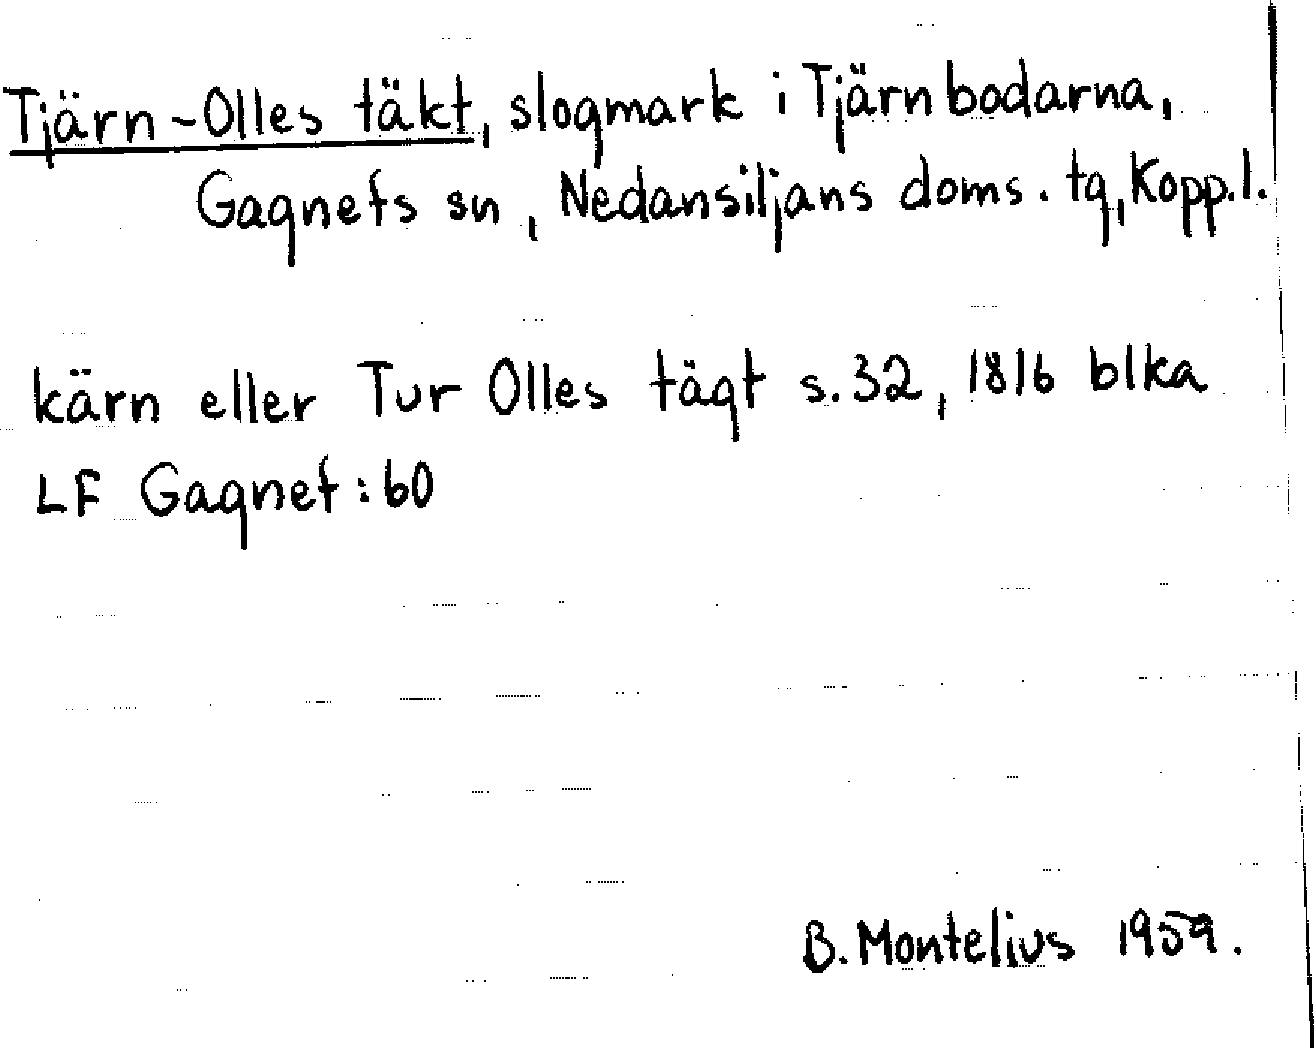 Tjärn-Olles täkt, slogmark i Tjärnbodarna,
Gagnefs sn, Nedansiljans doms. tg, Kopp.l.
kärn eller Tur Olles tägt s.32, 1816 blka
LF Gagnef:60
B. Montelius 1959.